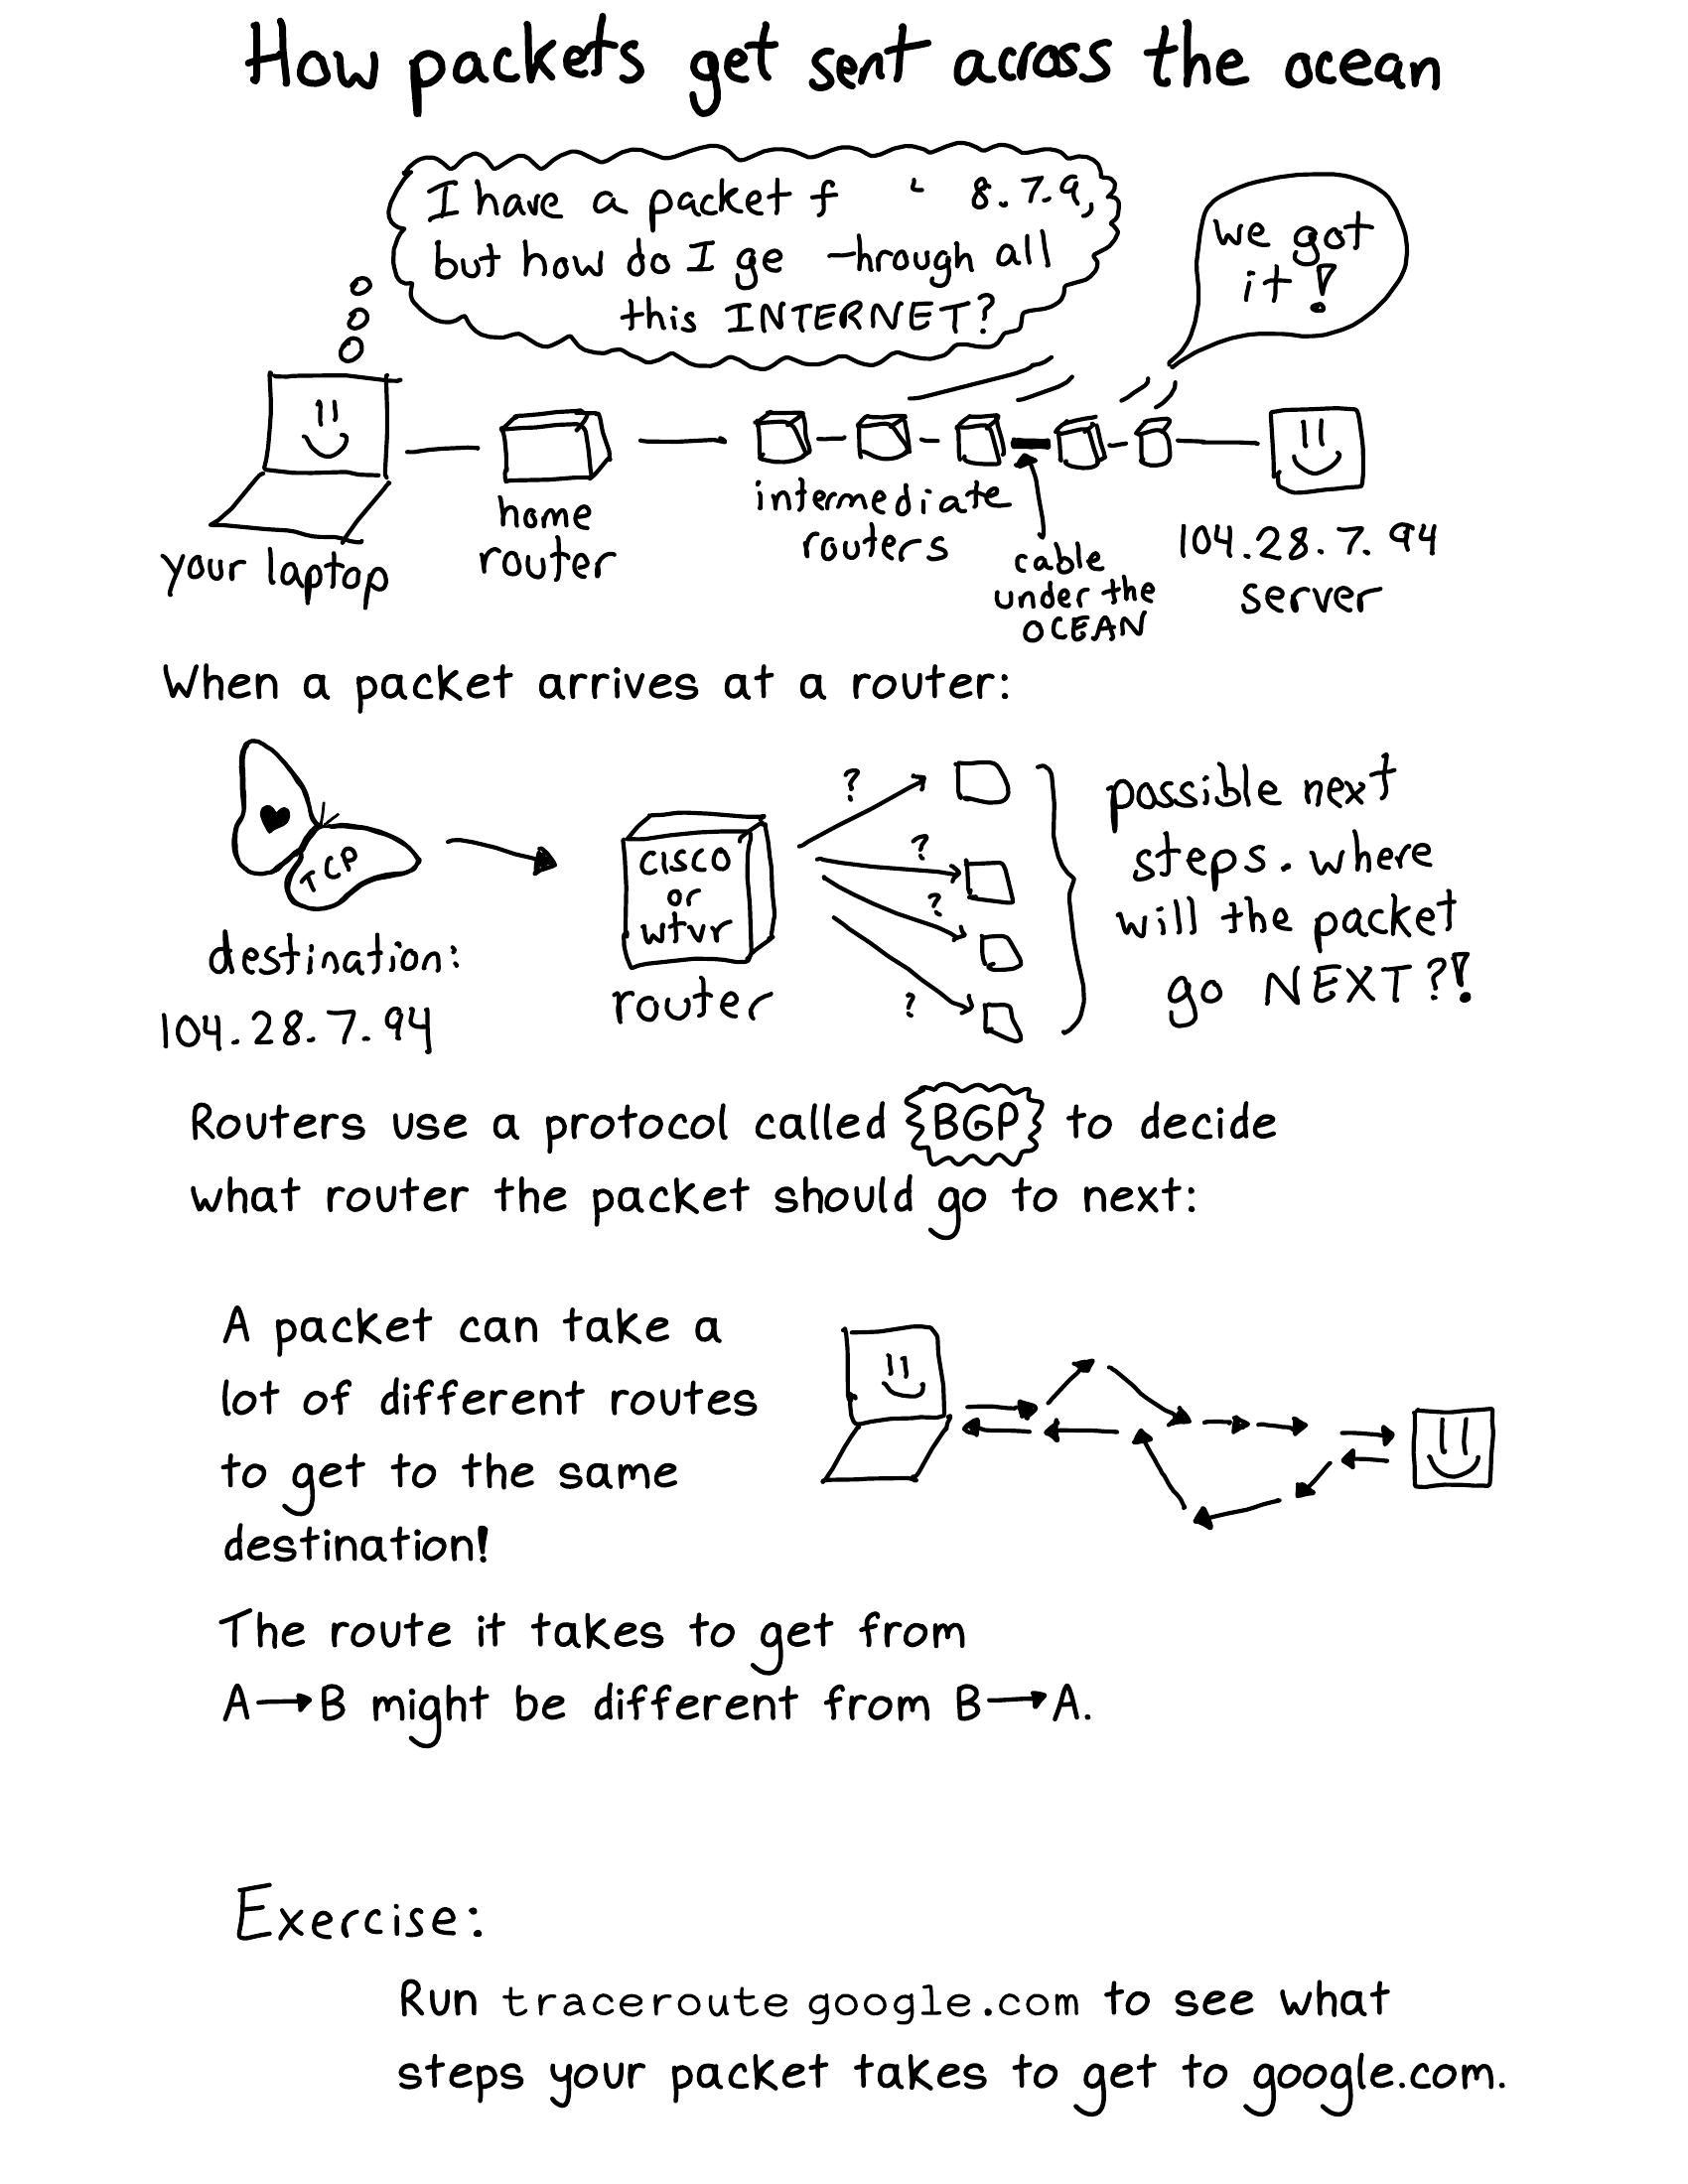 How packets get sent across the ocean
I have a packet 8.7.9,
but how do I all
this INTERNET?
we got
it!
your laptop
home
router
intermediate
routers
cable
under the
OCEAN
104.28.7.94
server
When a packet arrives at a router:
TCP
destination:
104.28.7.94
CISCO
or
wtvr
router
?
?
?
?
possible next
steps. where
will the packet
go NEXT?!
Routers use a protocol called BGP to decide
what router the packet should go to next:
A packet can take a
lot of different routes
to get to the same
destination!
The route it takes to get from
A→B might be different from B→A.
Exercise:
Run traceroute google.com to see what
steps your packet takes to get to google.com.